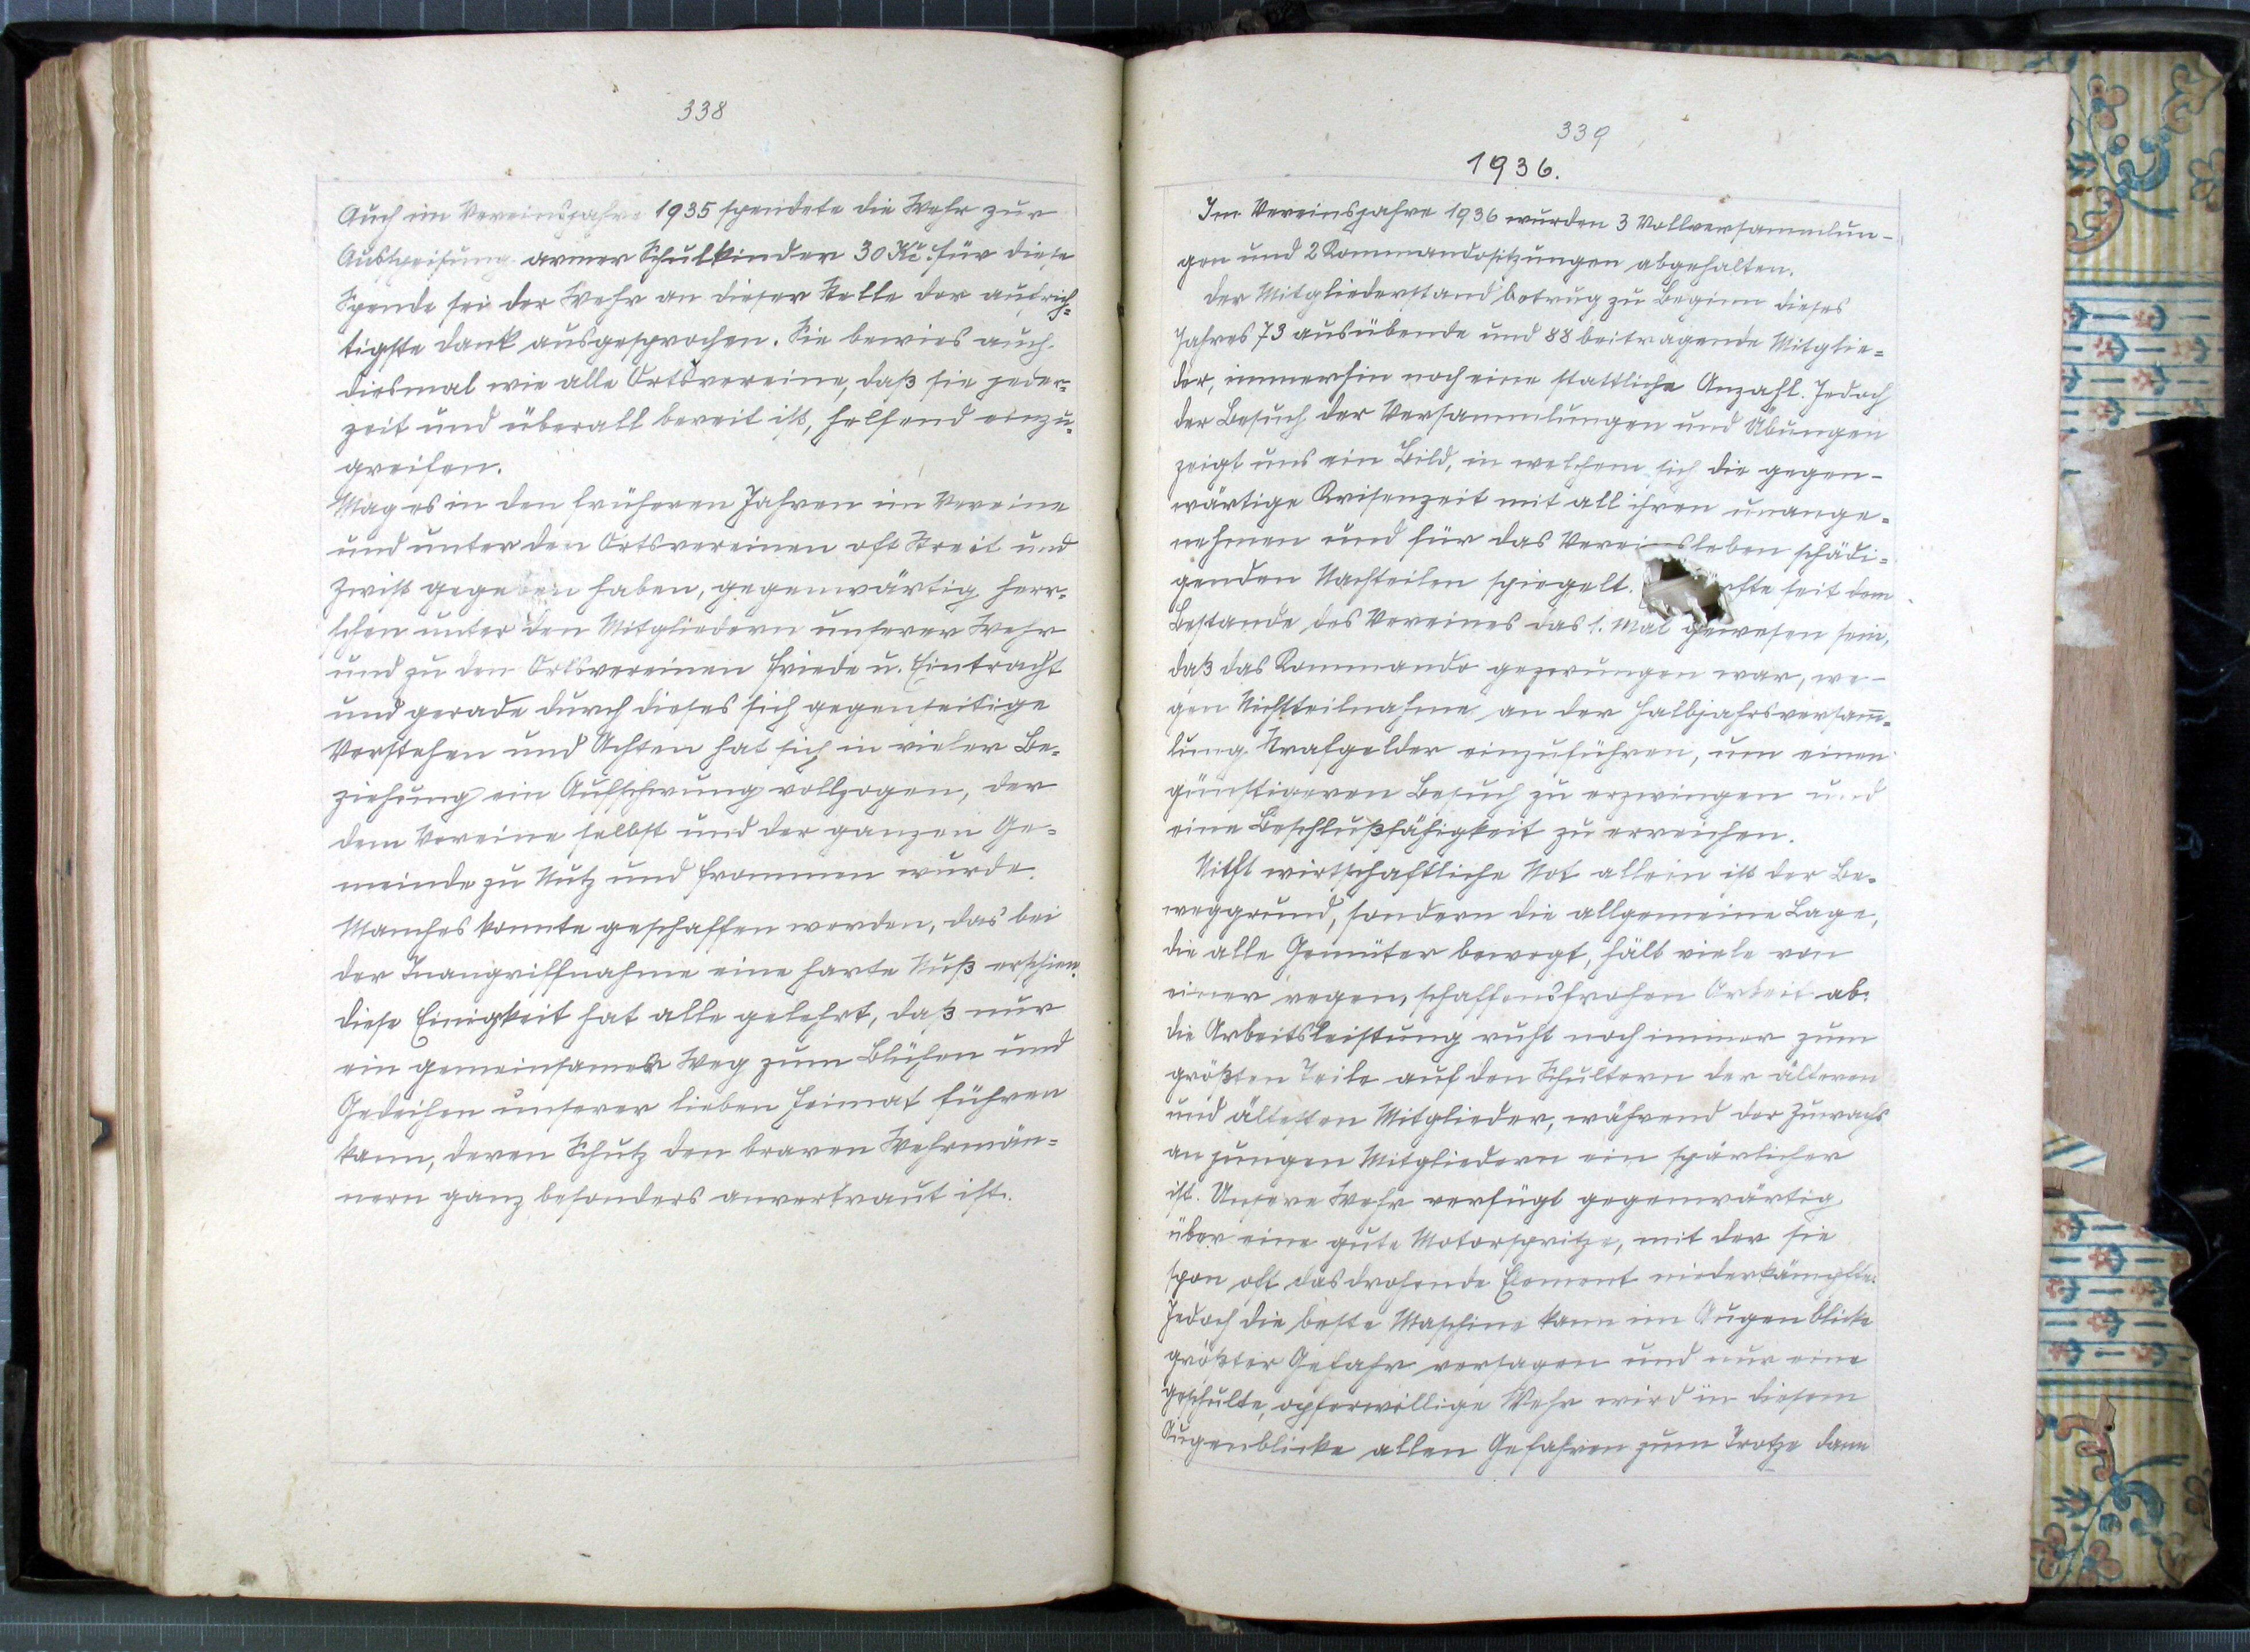 338
Auch im Vereinsjahre 1935 spendete die Wehr zur
Ausspeisung armer Schulkinder 30 Kč. Für diese
Spende sei der Wehr an dieser Stelle der aufrich=
tigste Dank ausgesprochen. Sie bewies auch
diesmal wie alle Ortsvereine, daß sie jeder=
zeit und überall bereit ist, helfend einzu=
greifen.
Mag es in den früheren Jahren im Vereine
und unter den Ortsvereinen oft Streit und
Zwist gegeben haben, gegenwärtig herr=
schen unter den Mitgliedern unserer Wehr
und zu den Ortsvereinen Friede u. Eintracht
und gerade durch dieses sich gegenseitige
Verstehen und Achten hat sich in vieler Be=
ziehung ein Aufschwung vollzogen, der
dem Vereine selbst und der ganzen Ge=
meinde zu Nutz und Frommen wurde.
Manches konnte geschaffen werden, das bei
der Inangriffnahme eine harte Nuß erschien.
Diese Einigkeit hat alle gelehrt, daß nur
ein gemeinsamer Weg zum Blühen und
Gedeihen unserer lieben Heimat führen
kann, deren Schutz den braven Wehrmän=
nern ganz besonders anvertraut ist.
339
1936.
Im Vereinsjahre 1936 wurden 3 Vollversammlun-
gen und 2 Kommandositzungen abgehalten.
Der Mitgliederstand betrug zu Beginn dieses
Jahres 73 ausübende und 88 beitragende Mitglie=
der, immerhin noch eine stattliche Anzahl. Jedoch
der Besuch der Versammlungen und Übungen
zeigt uns ein Bild, in welchem sich die gegen-
wärtige Krisenzeit mit all ihren unange=
nehmen und für das Vereinsleben schädi=
genden Nachteilen spiegelt. rfte seit dem
Bestande des Vereines das 1. Mal gewesen sein,
daß das Kommando gezwungen war, we-
gen Nichtteilnahme an der Halbjahrsversam̄=
lung Strafgelder einzuführen, um einen
günstigeren Besuch zu erzwingen und
eine Beschlußfähigkeit zu erreichen.
Nicht wirtschaftliche Not allein ist der Be=
weggrund, sondern die allgemeine Lage,
die alle Gemüter bewegt, hält viele von
einer regen, schaffensfrohen Arbeit ab.
Die Arbeitsleistung ruht noch immer zum
größten Teile auf den Schultern der älteren
und ältesten Mitglieder, während der Zuwachs
an jungen Mitgliedern ein spärlicher
ist. Unsere Wehr verfügt gegenwärtig
über eine gute Motorspritze, mit der sie
schon oft das drohende Element niederkämpfte.
Jedoch die beste Maschine kann im Augenblicke
größter Gefahr versagen und nur eine
geschulte, opferwillige Wehr wird in diesem
Augenblicke allen Gefahren zum Trotze dann